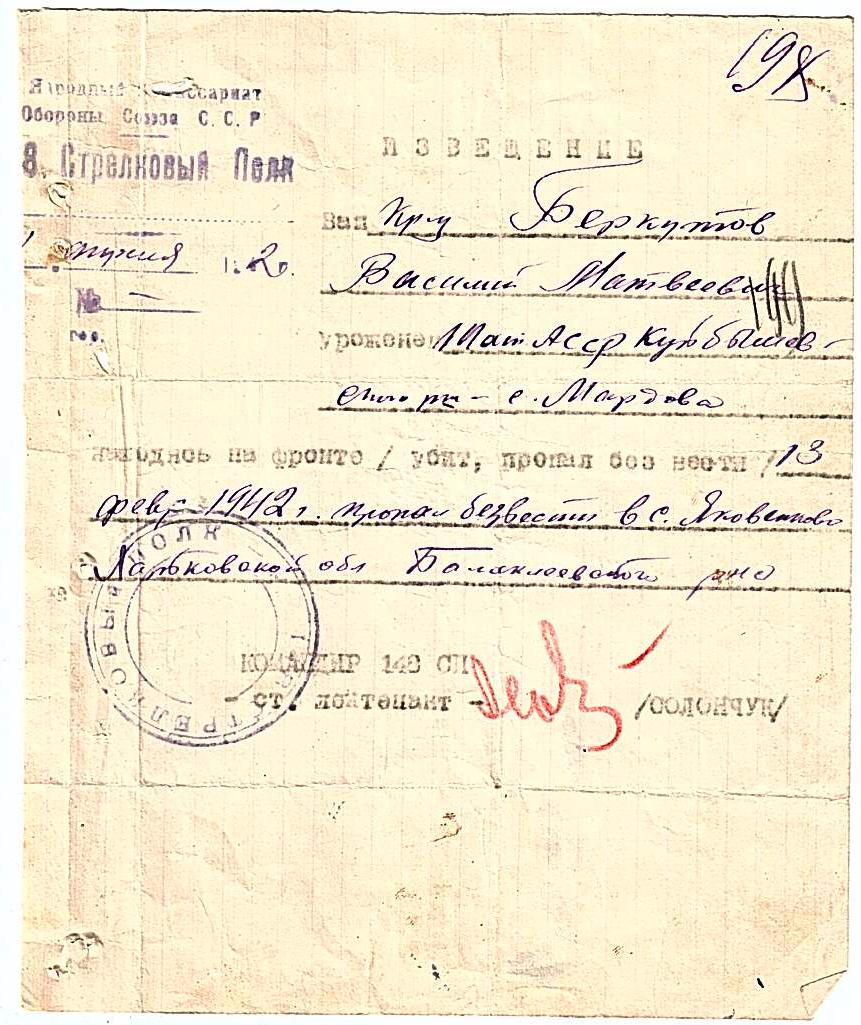 198
Народный Комиссариат
Обороны Союза С. С. Р
8. Стрелковый Полк
ИЗВЕЩЕНИЕ
июня 1. 2 г.
№ —
гор.
Ваш Беркутов
Василий Матвеевич
уроженец Тат АССР Куйбышев-
ский р-н с. Мордова
находясь на фронте / убит, пропал без вести / 13
февр 1942 г. пропал безвести в с. Яковенково
Харьковской обл Балаклеевского р-на
СТРЕЛКОВЫЙ ПОЛК
КОМАНДИР 148 СП
- ст. лейтенант - /СОЛОНЧУК/